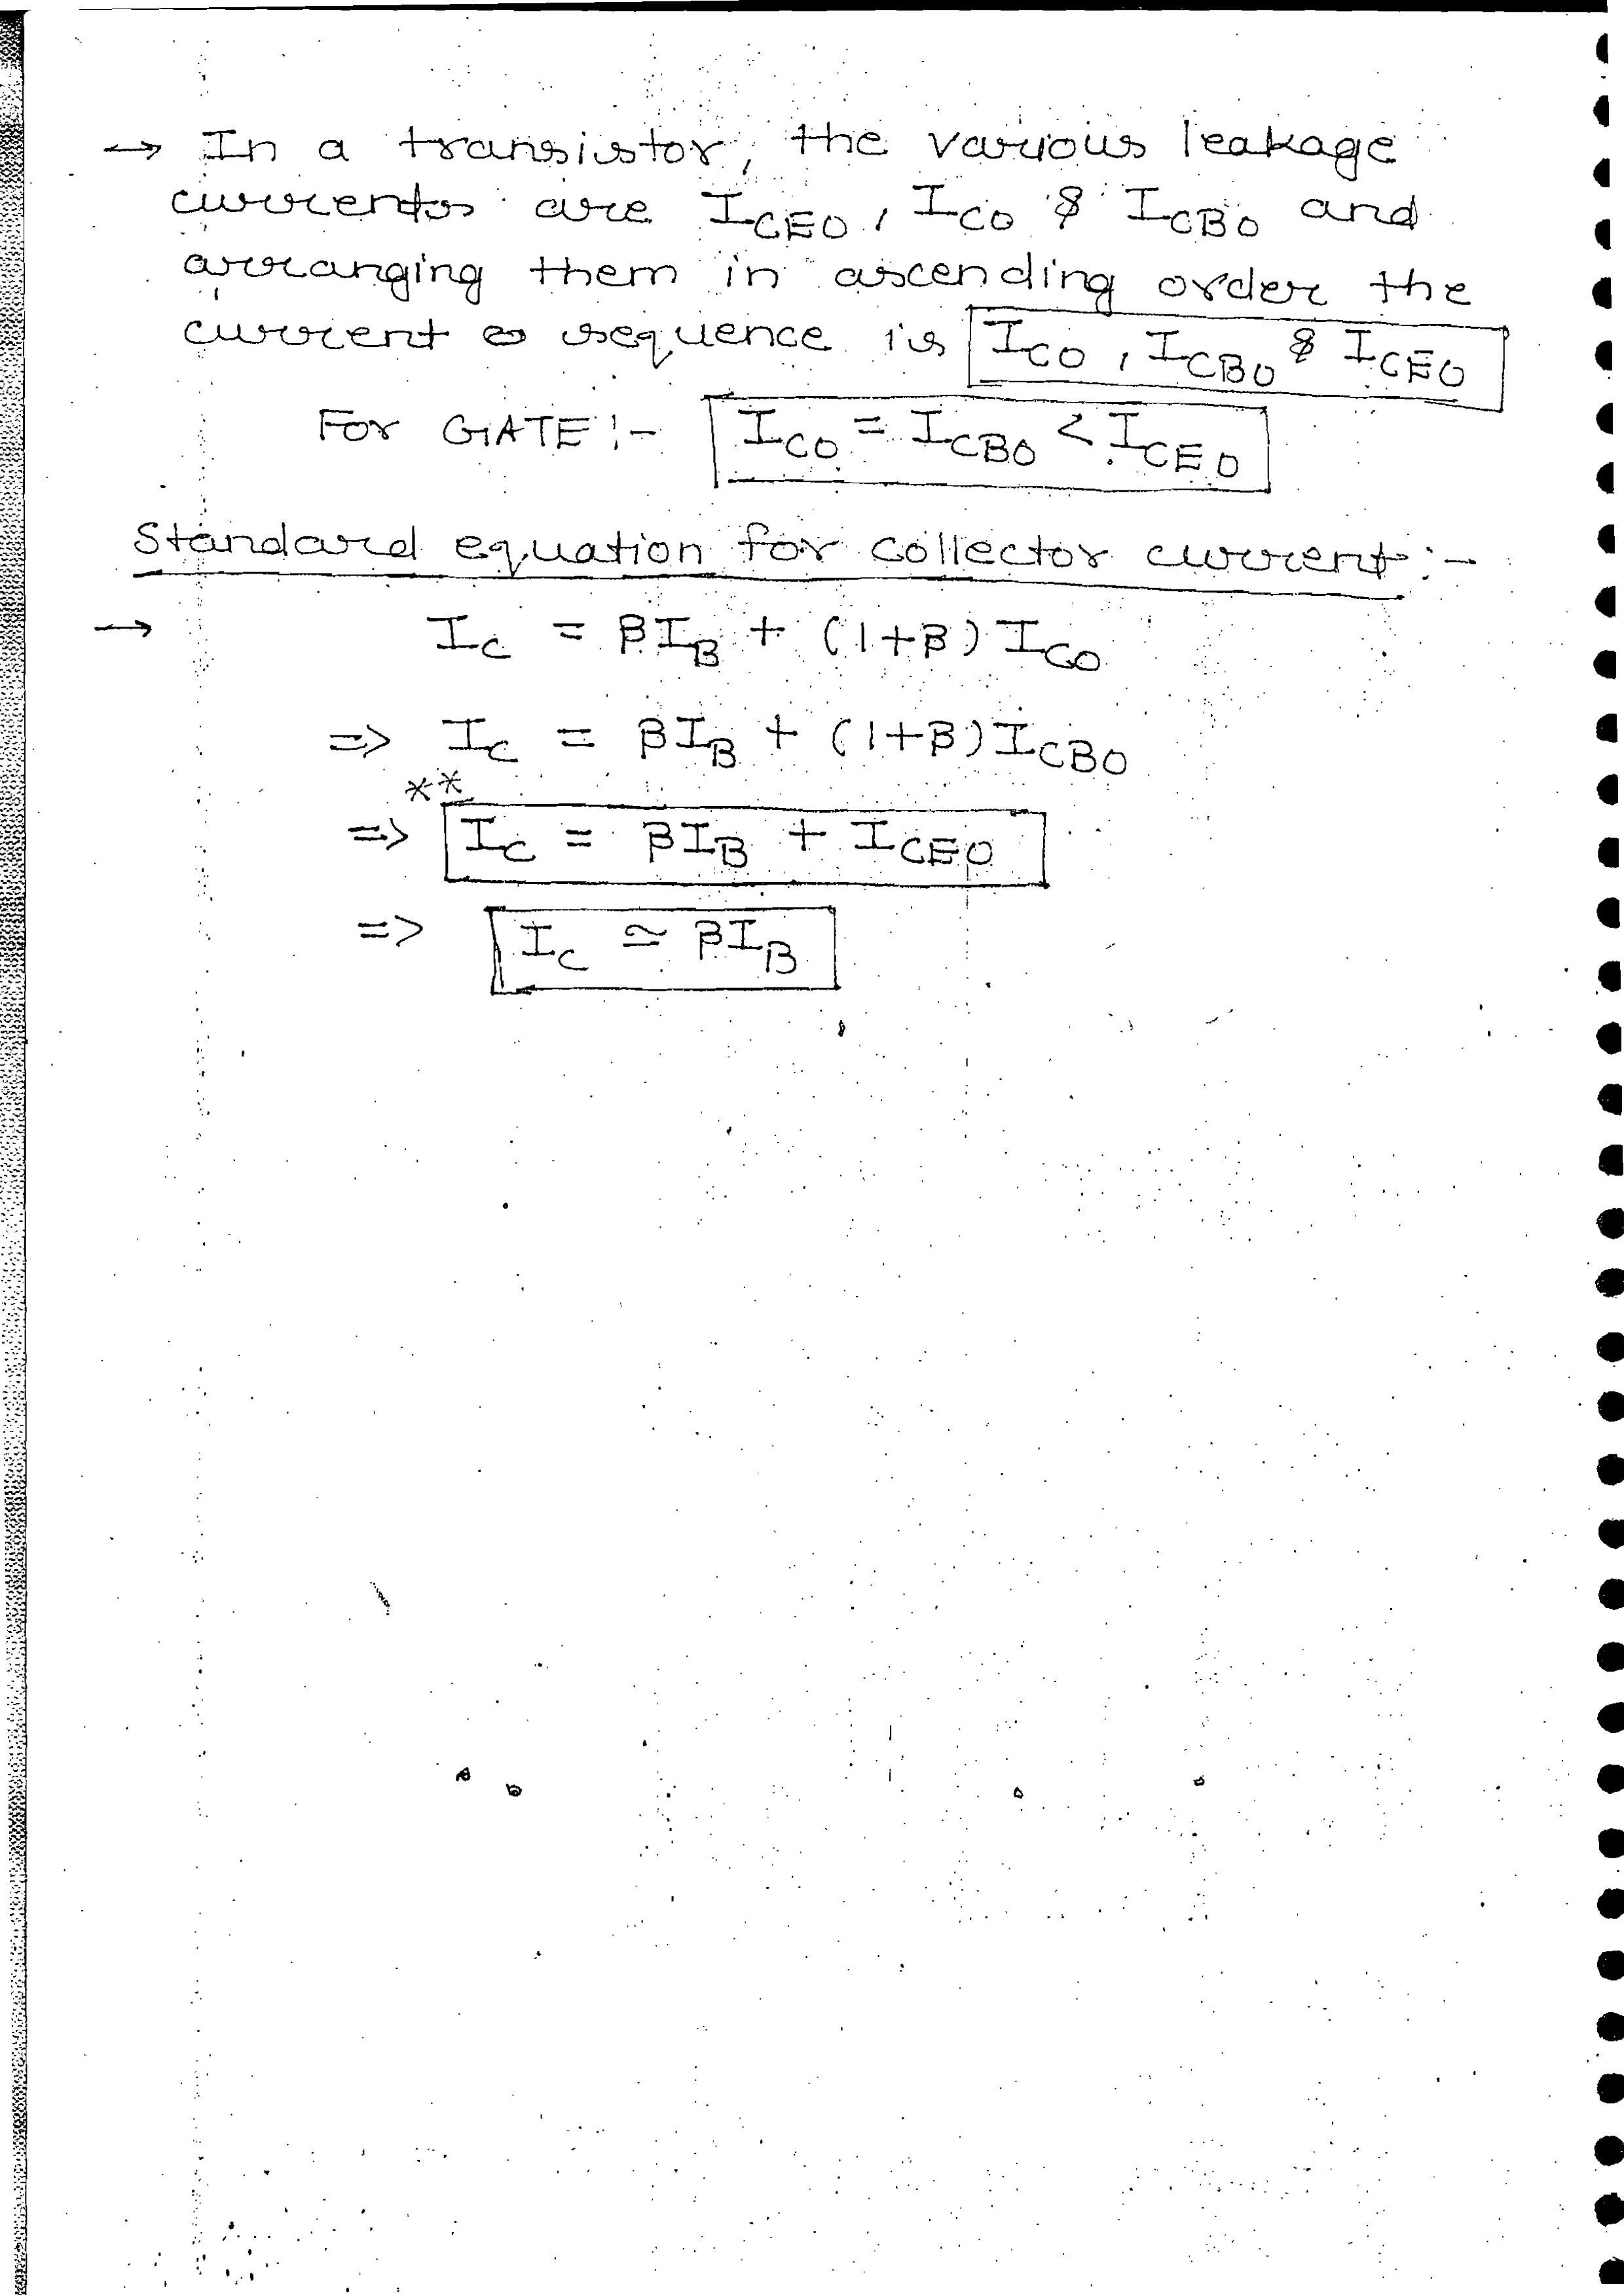 → In a transistor, the various leakage
currents are I_CEO, I_CO & I_CBO and
arranging them in ascending order the
current sequence is I_CO, I_CBO & I_CEO
For GATE:- I_CO = I_CBO < I_CEO
Standard equation for collector current:-
→ I_C = βI_B + (1+β) I_CO
=> I_C = βI_B + (1+β) I_CBO
**
=> I_C = βI_B + I_CEO
=> I_C ≃ βI_B